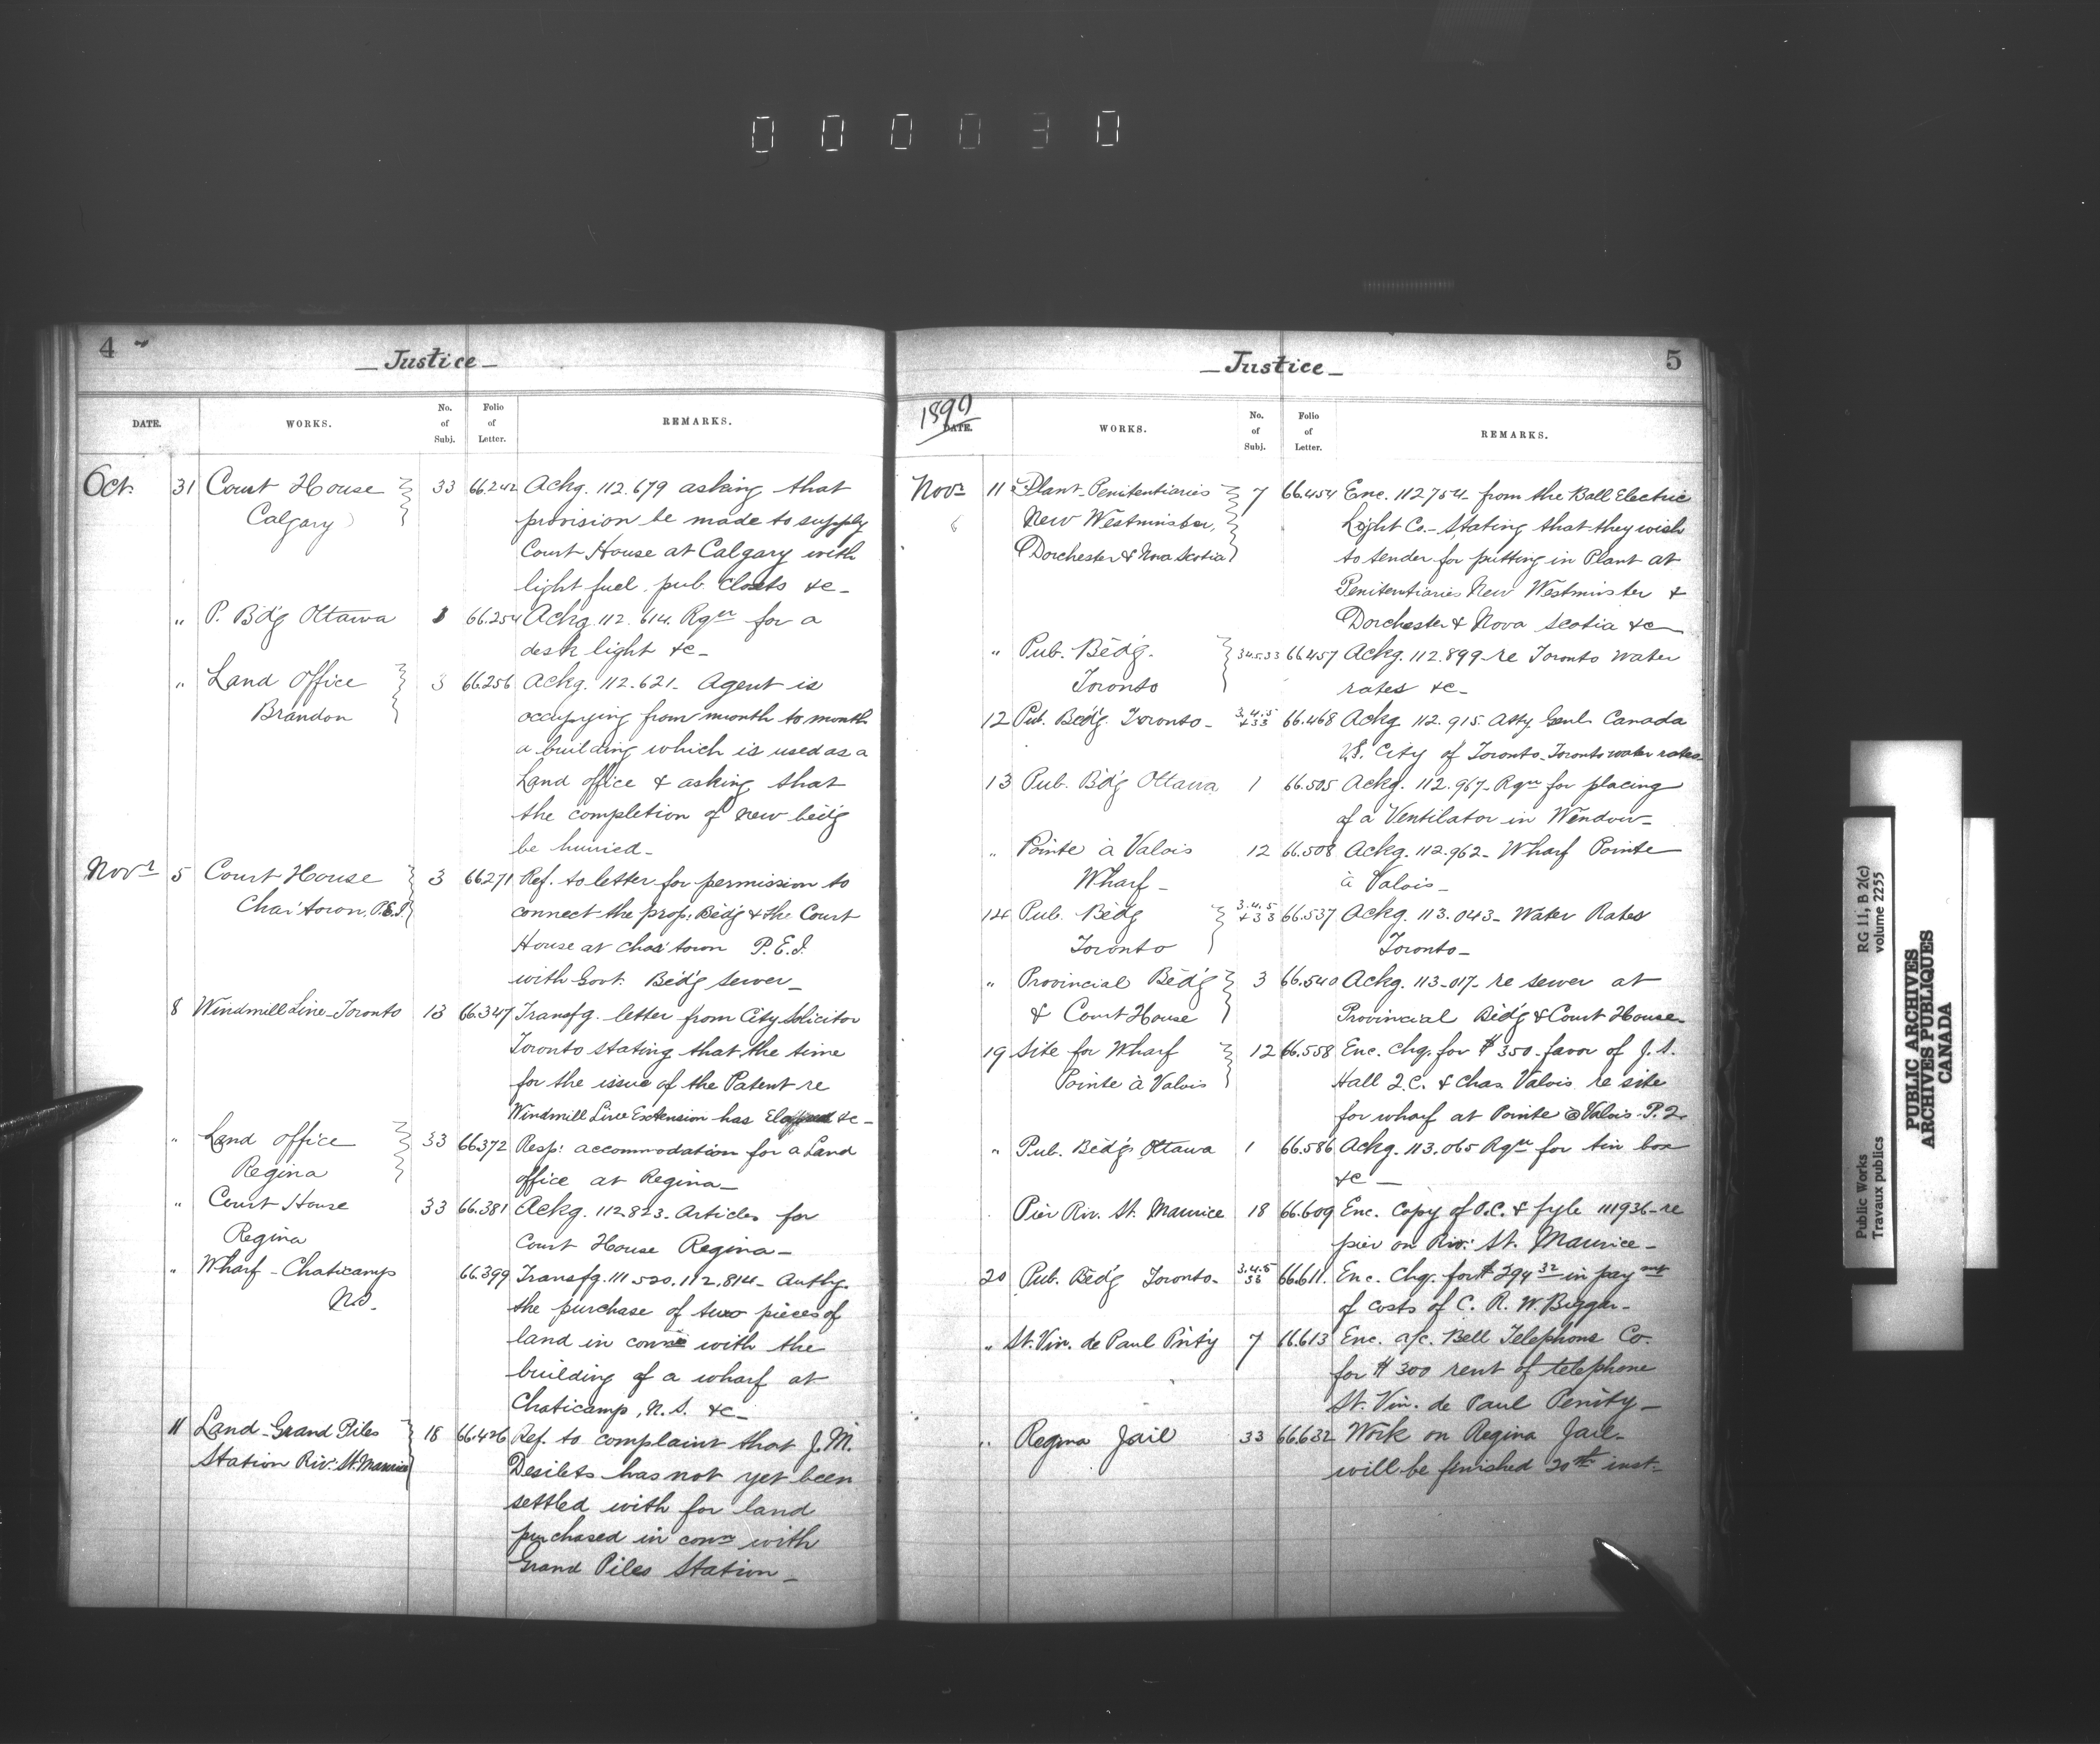 000030
4
Justice
DATE. WORKS. No. of Subj. Folio of Letter. REMARKS.
Oct. 31 Court House 33 66.242 Ackg. 112.679 asking that
Calgary provision be made to supply
Court House at Calgary with
light fuel pub. closets &c
" P. Bd'g Ottawa 66.254 Ackg. 112.614. Rqn for a
desk light &c
" Land Office 3 66.256 Ackg. 112.621. Agent is
Brandon occupying from month to month
a building which is used as a
Land office & asking that
the completion of new beid'g
be hurried
Novr 5 Court House 3 66.271 Ref. to letter for permission to
Cha'town, P.E.I. connect the prop: Beidg & the Court
House at Cha'town P.E.I.
with Govt. Beid'g sewer
8 Windmill Line Toronto 13 66.347 Transfg. letter from City Solicitor
Toronto stating that the time
for the issue of the Patent re
Windmill Line Extension has Elapsed &c
" Land office 33 66372 Resp: accommodation for a Land
Regina office at Regina
" Court House 33 66.381 Ackg. 112.823. Articles for
Regina Court House Regina
" Wharf - Chaticamp 66.399 Transfg. 111520.112.814 Authg.
N.S. the purchase of two pieces of
land in with the
building of a wharf at
Chaticamp, N.S. &c
11 Land - Grand Piles 18 66.426 Ref. to complaint that J.M.
Station Riv: St. Maurice Desilets has not yet been
settled with for land
purchased in conn with
Grand Piles Station
5
Justice
1890
DATE. WORKS. No. of Subj. Folio of Letter. REMARKS.
Novr 11 Plant-Penitentiaries 7 66.454 Enc. 112754 from the Ball Electric
New Westminster, Light Co. - Stating that they wish
Dorchester & Nova Scotia to tender for putting in Plant at
Penitentiaries New Westminster &
Dorchester & Nova Scotia &c
" Pub. Beidg. 3.4.5.33 66.457 Ackg. 112.899 re Toronto water
Toronto rates &c
12 Pub. Beidg. Toronto 3.4.5 & 33 66.468 Ackg 112.915 Atty Genl. Canada
VS. City of Toronto. Toronto water rates
13 Pub. Bd'g Ottawa 1 66.505 Ackg. 112.967 Rqn for placing
of a Ventilator in Window
" Pointe à Valois 12 66.508 Ackg. 112.962 - Wharf Pointe
Wharf à Valois
14 Pub. Beidg 3.4.5 & 33 66.537 Ackg. 113.043 - Water Rates
Toronto Toronto
" Provincial Beidg 3 66.540 Ackg. 113.017 re sewer at
& Court House Provincial Beidg & Court House
19 Site for Wharf 12 66.558 Enc. Chq. for $350 favor of J.S.
Pointe à Valois Hall Q.C. & Chas. Valois re site
for wharf at Pointe à Valois P.Q.
" Pub. Beidgs Ottawa 1 66.586 Ackg. 113.065 Rqn for tin box
&c
Pier Riv. St. Maurice 18 66.609 Enc. Copy of O.C. & fyle 111936 re
pier on Riv: St. Maurice
20 Pub. Beidg Toronto 3.4.5 33 66.611. Enc. Chq. for $294 32 in paymt
of costs of C.R.W. Biggar
" St. Vin. de Paul Pnty 7 66.613 Enc. a/c. Bell Telephone Co.
for $300 rent of telephone
St. Vin. de Paul Penity
" Regina Jail 33 66.632 Work on Regina Jail
will be finished 20th inst.
Public Works RG 11, B 2(c)
Travaux publics volume 2255
PUBLIC ARCHIVES
ARCHIVES PUBLIQUES
CANADA